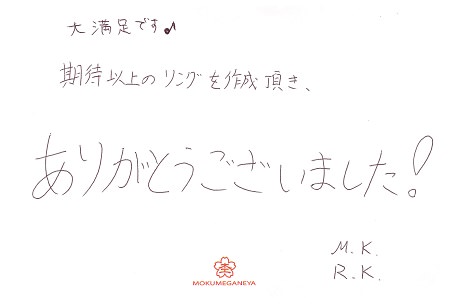 大満足です♪
期待以上のリングを作成頂き、
ありがとうございました!
M.K.
R.K.
MOKUMEGANEYA